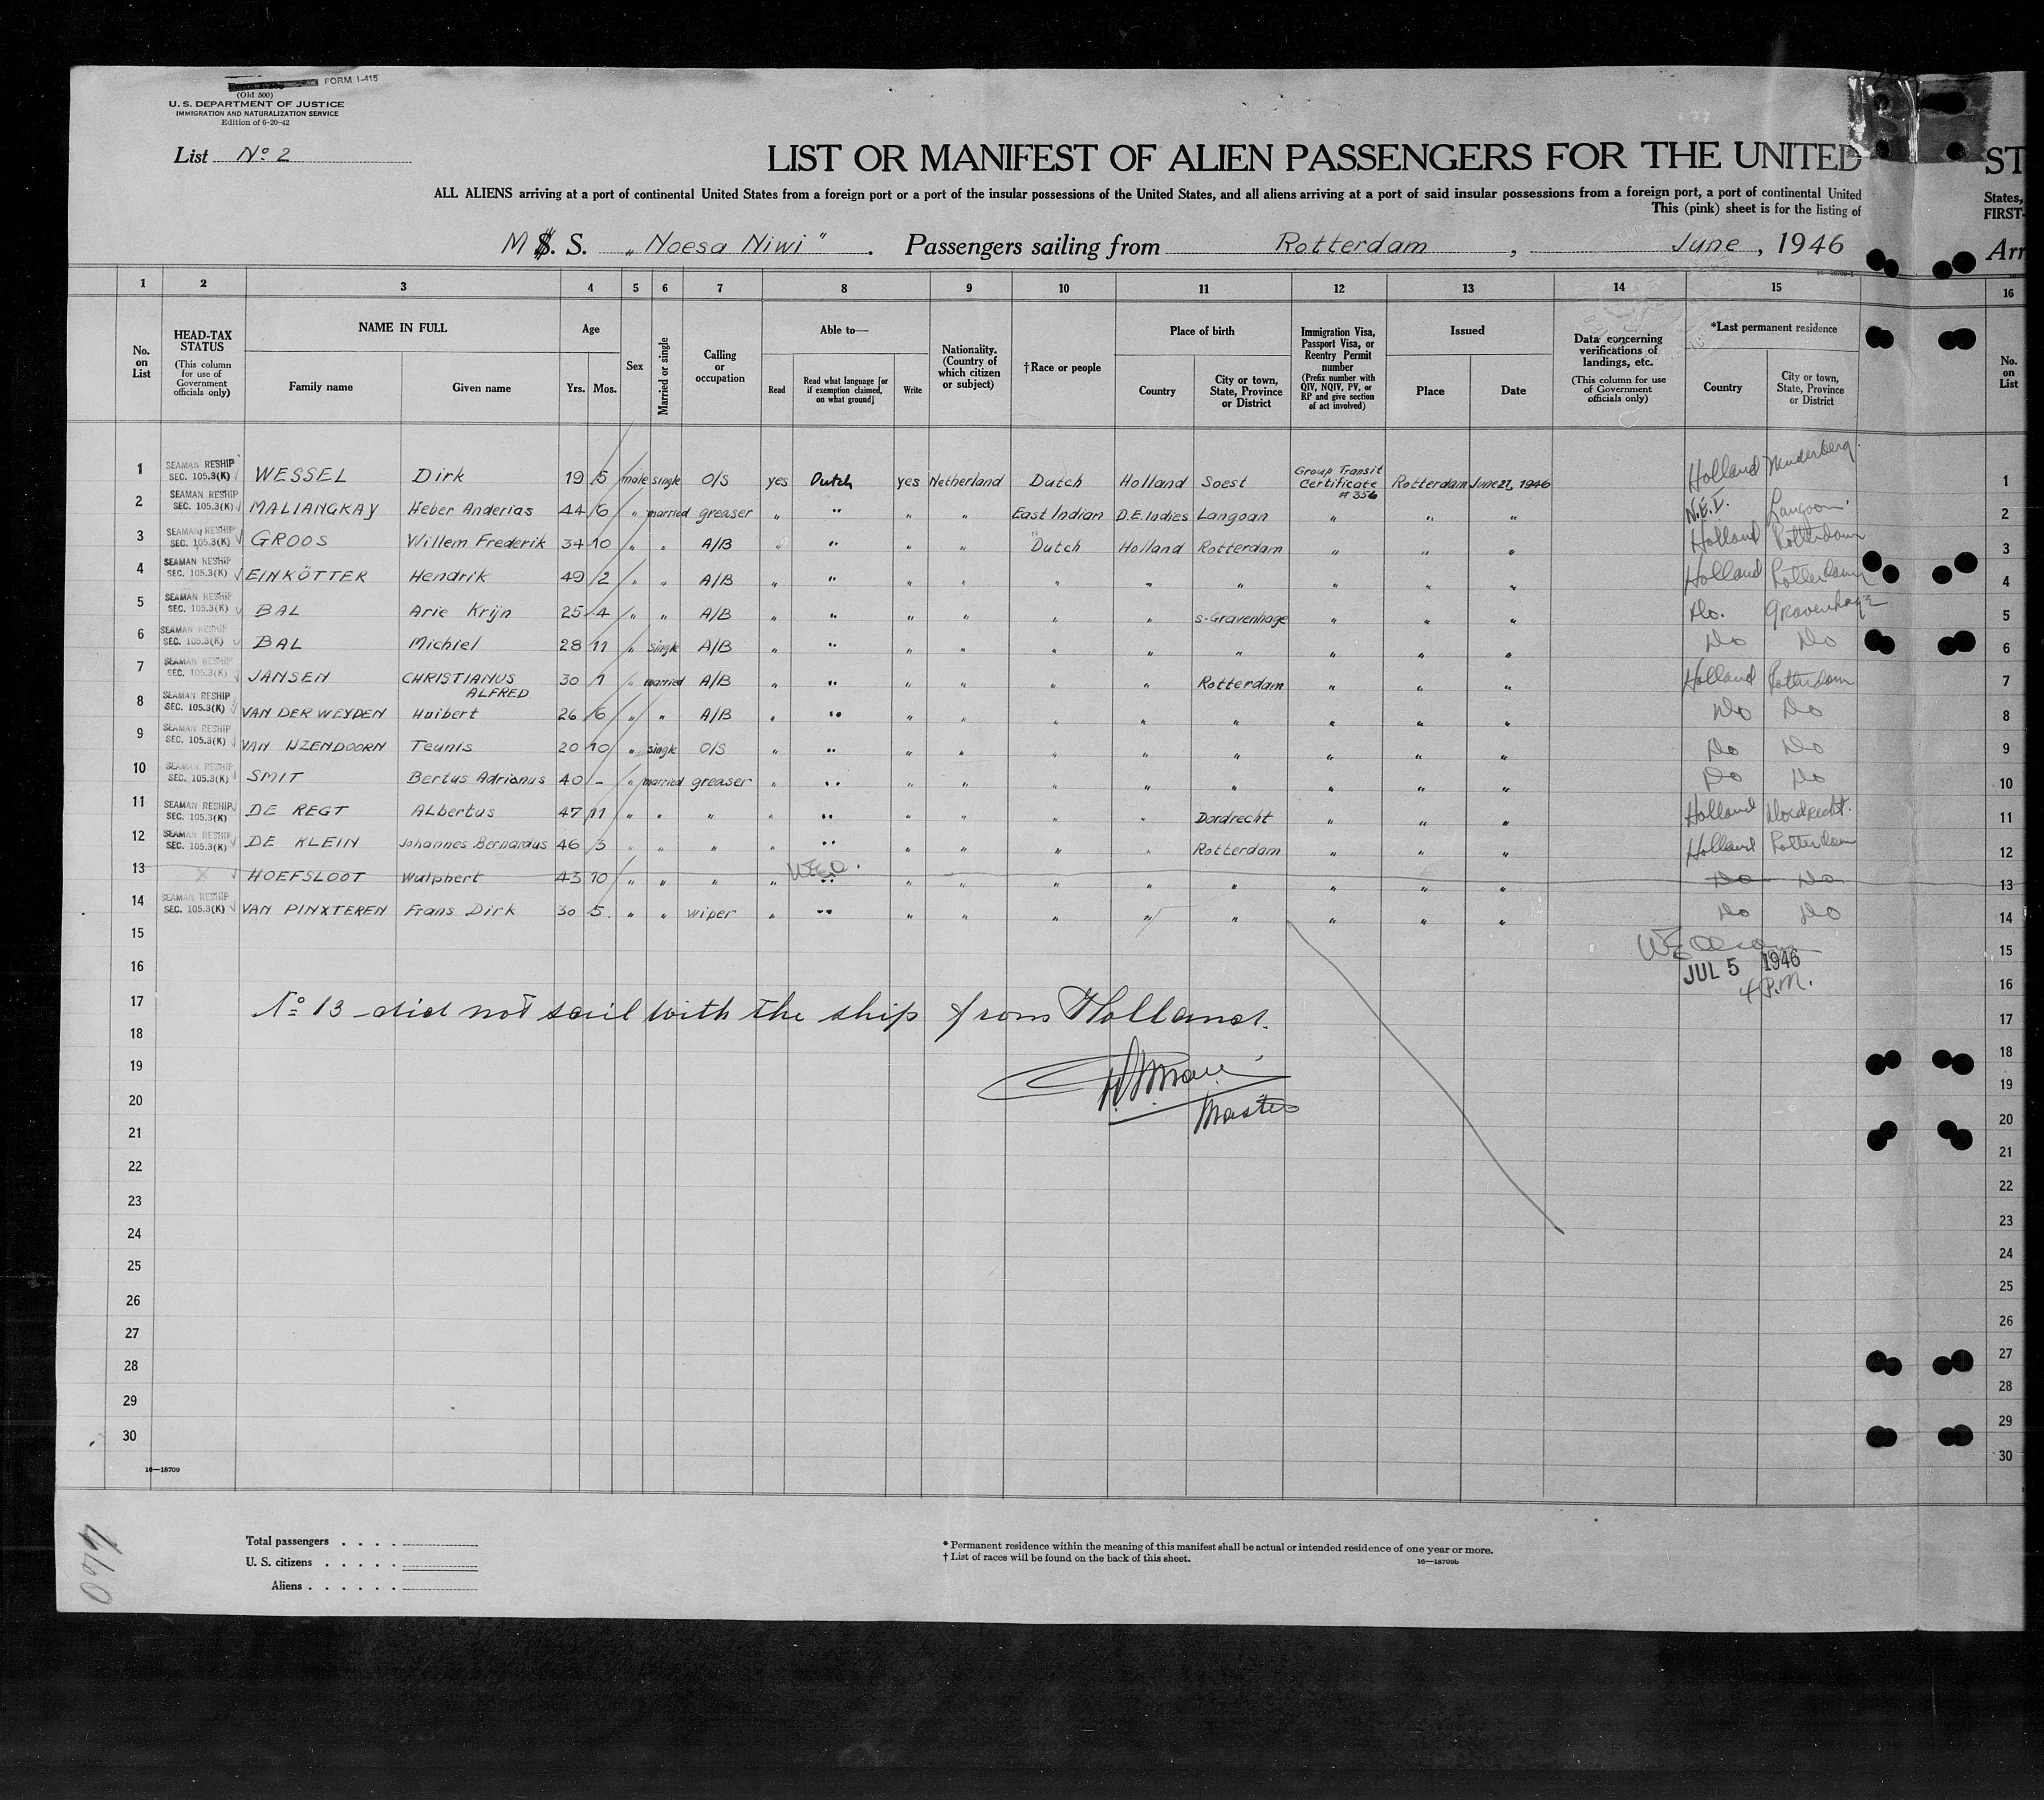 FORM I-415
(Old 500)
U. S. DEPARTMENT OF JUSTICE
IMMIGRATION AND NATURALIZATION SERVICE
Edition of 6-20-42
List No 2
LIST OR MANIFEST OF ALIEN PASSENGERS FOR THE UNITED ST
ALL ALIENS arriving at a port of continental United States from a foreign port or a port of the insular possessions of the United States, and all aliens arriving at a port of said insular possessions from a foreign port, a port of continental United States,
This (pink) sheet is for the listing of FIRST-
M S. S. „Noesa Niwi". Passengers sailing from Rotterdam, June, 1946 Arr
16—18709-1
1 2 3 4 5 6 7 8 9 10 11 12 13 14 15 16
No. on List
HEAD-TAX STATUS (This column for use of Government officials only)
NAME IN FULL Family name Given name
Age Yrs. Mos.
Sex
Married or single
Calling or occupation
Able to— Read Read what language [or if exemption claimed, on what ground] Write
Nationality. (Country of which citizen or subject)
†Race or people
Place of birth Country City or town, State, Province or District
Immigration Visa, Passport Visa, or Reentry Permit number (Prefix number with QIV, NQIV, PV, or RP and give section of act involved)
Issued Place Date
Data concerning verifications of landings, etc. (This column for use of Government officials only)
*Last permanent residence Country City or town, State, Province or District
No. on List
1 SEAMAN RESHIP SEC. 105.3(K) WESSEL Dirk 19 5 male single O/S yes Dutch yes Netherland Dutch Holland Soest Group Transit Certificate # 356 Rotterdam June 27, 1946 Holland 1
2 SEAMAN RESHIP SEC. 105.3(K) MALIANGKAY Heber Anderias 44 6 „ married greaser „ „ „ „ East Indian D.E. Indies Langoan „ „ „ N.E.I. Langoan 2
3 SEAMAN RESHIP SEC. 105.3(K) GROOS Willem Frederik 34 10 „ „ A/B „ „ „ „ Dutch Holland Rotterdam „ „ „ Holland Rotterdam 3
4 SEAMAN RESHIP SEC. 105.3(K) EINKÖTTER Hendrik 49 2 „ „ A/B „ „ „ „ „ „ „ „ „ „ Holland Rotterdam 4
5 SEAMAN RESHIP SEC. 105.3(K) BAL Arie Krijn 25 4 „ „ A/B „ „ „ „ „ „ s-Gravenhage „ „ „ Do. Gravenhage 5
6 SEAMAN RESHIP SEC. 105.3(K) BAL Michiel 28 11 „ single A/B „ „ „ „ „ „ „ „ „ „ Do Do 6
7 SEAMAN RESHIP SEC. 105.3(K) JANSEN CHRISTIANUS ALFRED 30 1 „ married A/B „ „ „ „ „ „ Rotterdam „ „ „ Holland Rotterdam 7
8 SEAMAN RESHIP SEC. 105.3(K) VAN DER WEYDEN Huibert 26 6 „ „ A/B „ „ „ „ „ „ „ „ „ „ Do Do 8
9 SEAMAN RESHIP SEC. 105.3(K) VAN IJZENDOORN Teunis 20 10 „ single O/S „ „ „ „ „ „ „ „ „ „ Do Do 9
10 SEAMAN RESHIP SEC. 105.3(K) SMIT Bertus Adrianus 40 - „ married greaser „ „ „ „ „ „ „ „ „ „ Do Do 10
11 SEAMAN RESHIP SEC. 105.3(K) DE REGT Albertus 47 11 „ „ „ „ „ „ „ „ „ Dordrecht „ „ „ Holland Dordrecht. 11
12 SEAMAN RESHIP SEC. 105.3(K) DE KLEIN Johannes Bernardus 46 3 „ „ „ „ „ „ „ „ „ Rotterdam „ „ „ Holland Rotterdam 12
13 X HOEFSLOOT Wulphert 43 10 „ „ „ „ „ „ „ „ „ „ „ „ „ Do Do 13
14 SEAMAN RESHIP SEC. 105.3(K) VAN PINXTEREN Frans Dirk 30 5 „ „ wiper „ „ „ „ „ „ „ „ „ „ Do Do 14
15 15
16 JUL 5 1946 4 P.M. 16
17 No 13 did not sail with the ship from Holland. 17
18 18
19 19
20 Master 20
21 21
22 22
23 23
24 24
25 25
26 26
27 27
28 28
29 29
30 30
16—18709
Total passengers . . . .
U. S. citizens . . . . .
Aliens . . . . . .
* Permanent residence within the meaning of this manifest shall be actual or intended residence of one year or more.
† List of races will be found on the back of this sheet.
16—18709b